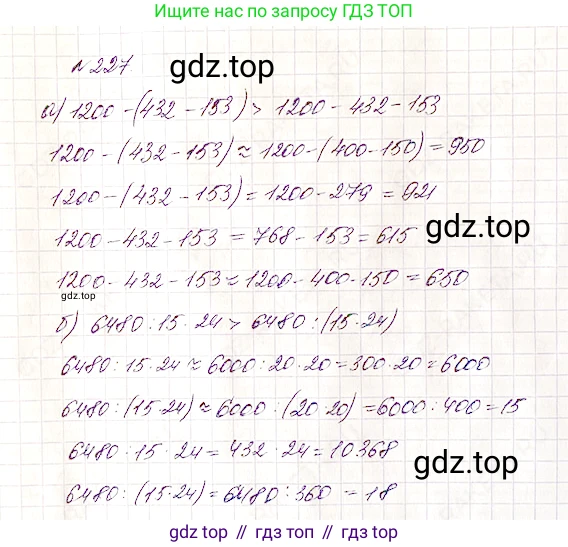 Ищите нас по запросу ГДЗ ТОП
№227
gdz.top
а) 1200-(432-153) > 1200-432-153
1200-(432-153) ≈ 1200-(400-150) = 950
1200-(432-153) = 1200-279 = 921
1200-432-153 = 768-153 = 615
gdz.top
1200-432-153 ≈ 1200-400-150 = 650
gdz.top
б) 6480:15·24 > 6480:(15·24)
6480:15·24 ≈ 6000:20·20 = 300·20 = 6000
6480:(15·24) ≈ 6000:(20·20) = 6000:400 = 15
6480:15·24 = 432·24 = 10368
gdz.top
6480:(15·24) = 6480:360 = 18
gdz.top // гдз топ // гдз.топ